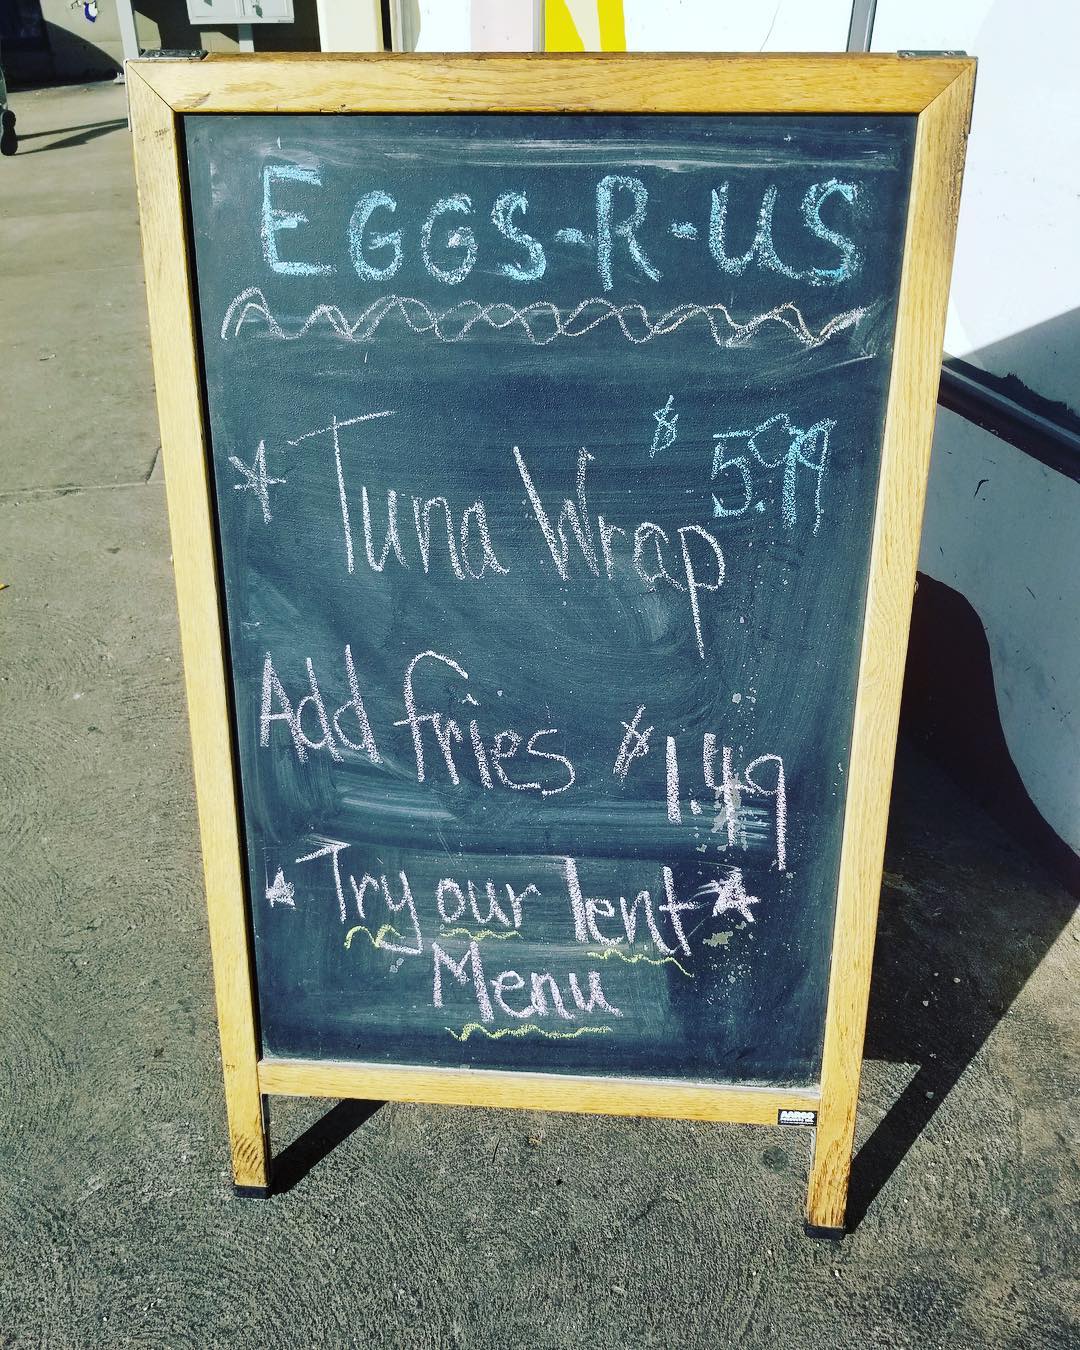 EGGS-R-US
* Tuna Wrap $5.99
Add fries $1.49
Try our lent
Menu
AARCO